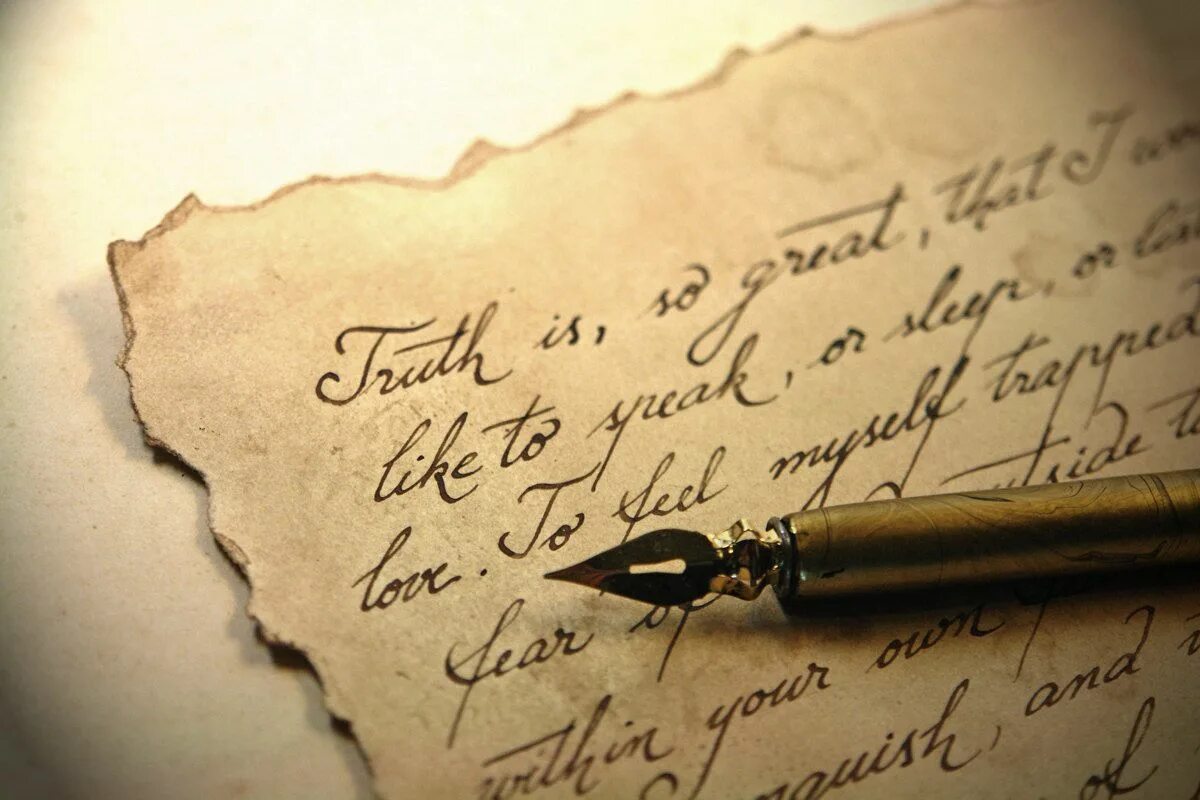 Truth is, so great, that I
like to speak, or sleep, or
love. To feel myself trapped
fear of outside
within your own
anguish, and
of